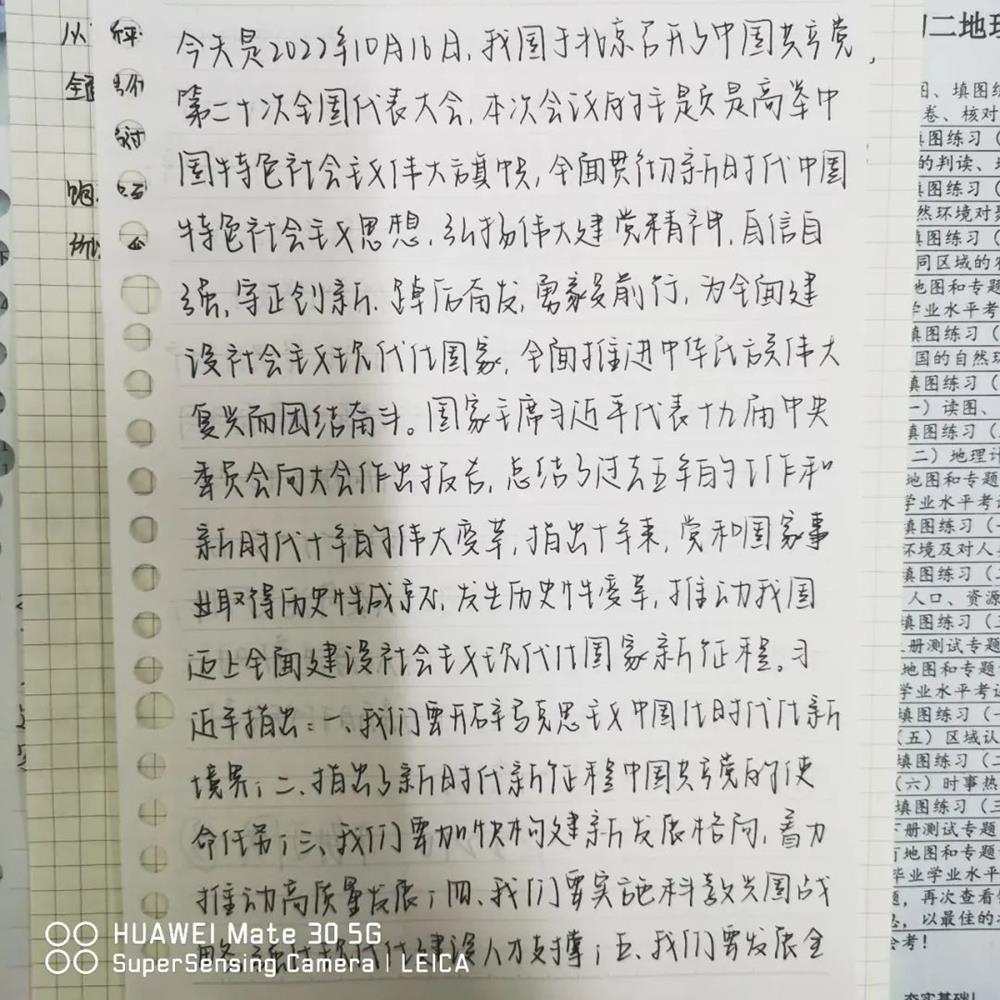 今天是2022年10月16日，我国于北京召开了中国共产党
第二十次全国代表大会，本次会议的主题是高举中
国特色社会主义伟大旗帜，全面贯彻新时代中国
特色社会主义思想，弘扬伟大建党精神，自信自
强，守正创新，踔厉奋发，勇毅前行，为全面建
设社会主义现代化国家，全面推进中华民族伟大
复兴而团结奋斗。国家主席习近平代表十九届中央
委员会向大会作出报告，总结了过去五年的工作和
新时代十年的伟大变革，指出十年来，党和国家事
业取得历史性成就，发生历史性变革，推动我国
迈上全面建设社会主义现代化国家新征程。习
近平指出：一、我们要开辟马克思主义中国化时代化新
境界；二、指出了新时代新征程中国共产党的使
命任务；三、我们要加快构建新发展格局，着力
推动高质量发展；四、我们要实施科教兴国战
略，强化现代化建设人才支撑；五、我们要发展全
HUAWEI Mate 30 5G
SuperSensing Camera | LEICA
从
全面
二地理
图、填图
卷、核对
填图练习（
的判读、
填图练习（
然环境对
填图练习（
同区域的
地图和专题
学业水平考
填图练习（
国的自然环
填图练习（
一）读图、
填图练习（
二）地理计
地图和专题
学业水平考试
填图练习（
环境及对人
填图练习（
人口、资源
填图练习（三
册测试专题
地图和专题
学业水平考试
填图练习（一
（五）区域认
填图练习（二
（六）时事热
填图练习（三
下册测试专题
地图和专题
毕业学业水平
，再次查看
，以最佳的
会考！
夯实基础！